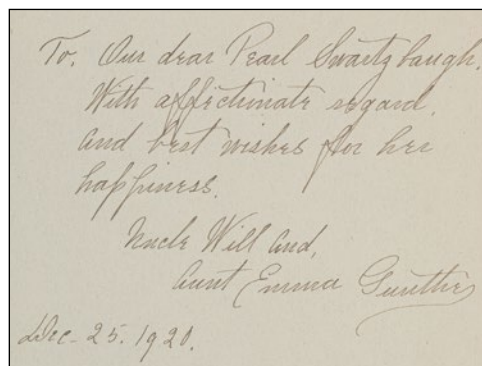 To. Our dear Pearl Swartzbaugh.
With affectionate regard,
and best wishes for her
happiness.
Uncle Will and,
Aunt Emma Gunther
Dec - 25. 1920.